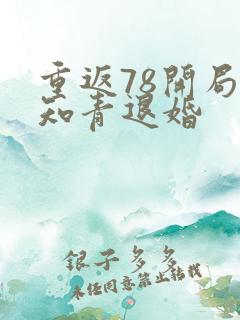 重返78開局
知青退婚
銀子多多
未任同意禁止轉載